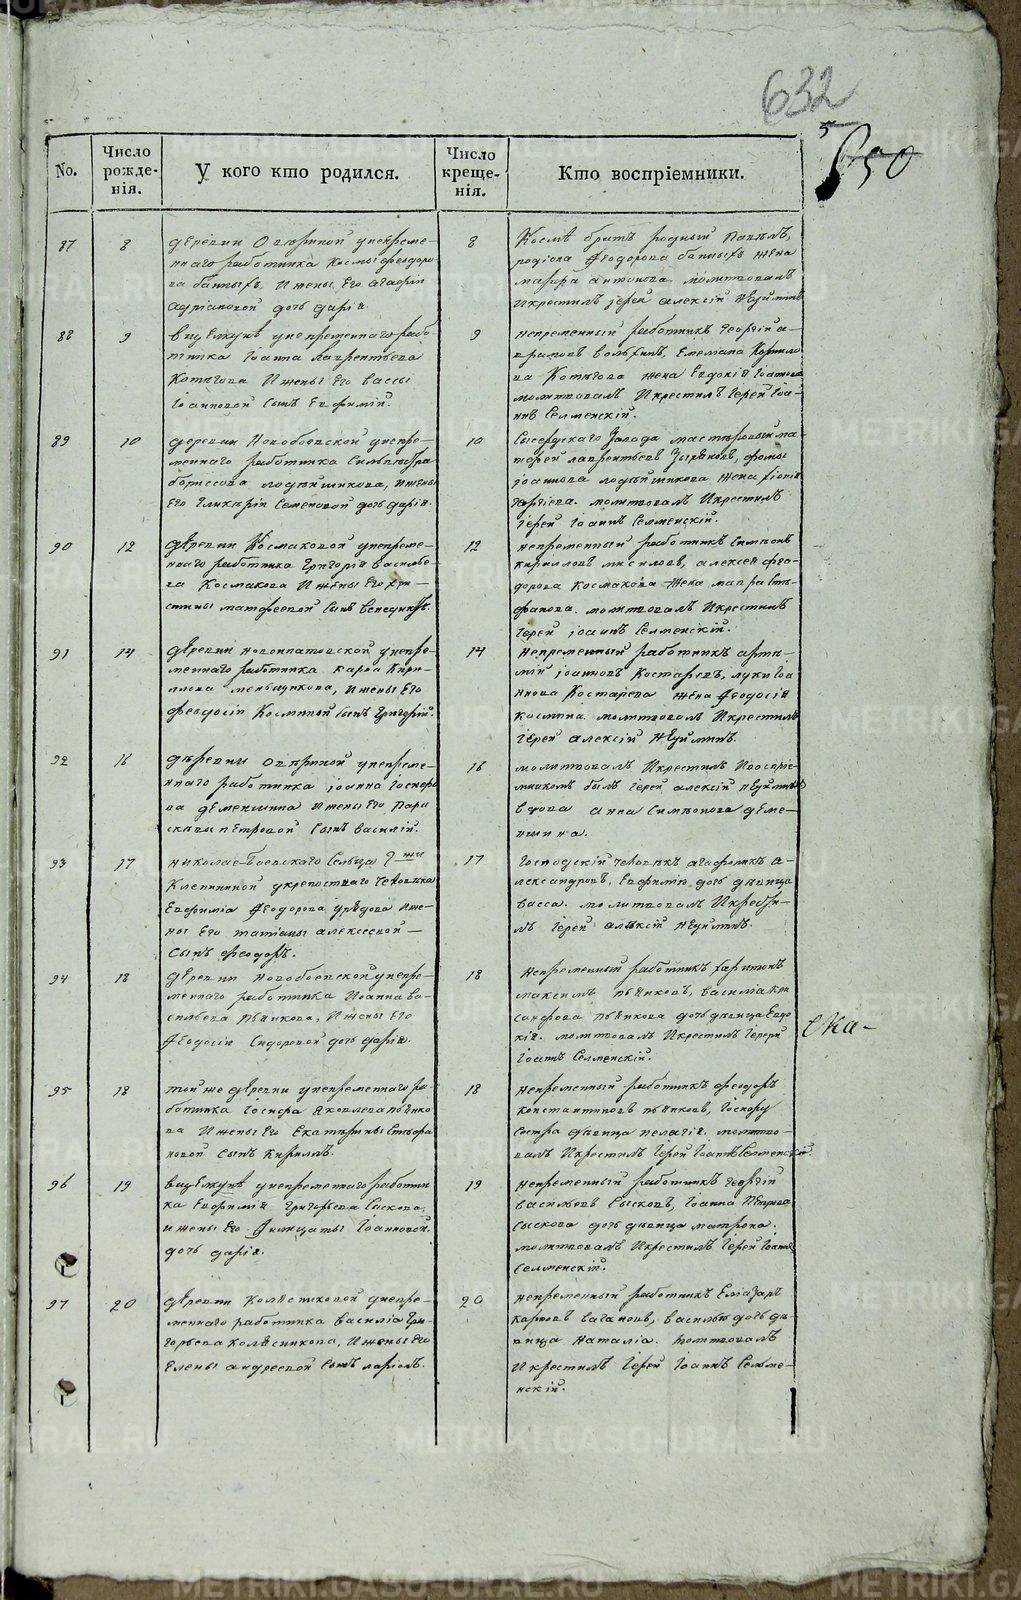 632
5
850
No.
Число рожде-нія.
У кого кто родился.
Число креще-нія.
Кто воспріемники.
87
8
деревни унепреме-
ннаго работника Космы феодоро-
ва банныхъ, И жены Его агафіи
адріановой дочь дарія.
8
Космѣ братъ родный Павелъ,
родіона Феодорова банныхъ жена
марфа антонова. молитвовалъ
Икрестилъ іерей алексій
88
9
вщелкунѣ унепременнаго рабо-
тника Іоанна лаврентьева
Котыгова И жены Его вассы
Іоанновой Сынъ Евфимій.
9
непременный работникъ Георгій а-
врамовъ Емеліана Корнило-
ва Котыгова жена Евдокія Іоаннова
молитвовалъ Икрестилъ Іерей Іоа-
ннъ Селменскій.
89
10
деревни Новобоевской унепре-
меннаго работника
борисова И жены
Его Гликеріи Семеновой дочь дарія.
10
Сысерцкаго Завода мастеровый ма-
тфей лаврентьевъ Зыряновъ, фомы
іоаннова жена
георгіева. молитвовалъ Икрестилъ
Іерей Іоаннъ Селменскій.
90
12
деревни Космаковой унепреме-
ннаго работника Григорія василье-
ва Космакова И жены Его хри-
стины матфеевой Сынъ венедиктъ.
12
непременный работникъ Симеонъ
Кирилловъ алексея фео-
дорова Космакова жена мавра Сте-
фанова. молитвовалъ Икрестилъ
Іерей іоаннъ Селменскій.
91
14
деревни новоипатовской унепре-
меннаго работника карпа Кири-
ллова меньщикова, И жены Его
феодосіи Космины Сынъ Григорій.
14
непременный работникъ арте-
мій іоанновъ Костаревъ, луки Іоа-
ннова Костарева жена Феодосія
космина. молитвовалъ Икрестилъ
Іерей алексій
92
16
деревни унепреме-
ннаго работника іоанна Іосифо-
ва деменшина И жены Его Пара-
скевы петровой Сынъ василій.
16
молитвовалъ Икрестилъ Ивоспріе-
мникомъ былъ Іерей алексій
вдова анна Симеонова деме-
ншина.
93
17
николае-боевскаго Сельца Г-жи
Клепининой укрепостнаго человѣка
Евфиміа Феодорова И же-
ны Его татіаны алексеевой
Сынъ феодоръ.
17
Господскій человѣкъ агафоникъ а-
лександровъ, Евфиміа дочь дѣвица
васса. молитвовалъ Икрести-
лъ Іерей алексій
94
18
деревни новобоевской унепре-
меннаго работника Иоанна ва-
сильева пьянкова, И жены Его
Феодосіи Сидоровой дочь дарія.
18
Непременный работникъ харитонъ
максимъ пьянковъ, василіа
пьянкова дочь дѣвица Евдо-
кія. молитвовалъ Икрестилъ Іерей
Іоаннъ Селменскій.
95
18
той же деревни унепременнаго ра-
ботника Іосифа Яковлева пьянко-
ва И жены Его Екатерины Стефа-
новой Сынъ Кириллъ.
18
непременный работникъ феодоръ
константиновъ пьянковъ, Іосифу
Сестра дѣвица пелагія. молитво-
валъ Икрестилъ Іерей Іоаннъ Селменскій.
96
19
вщелкунѣ унепременнаго работни-
ка Евфимія Григорьева Сыскова,
И жены Его Іоанновой
дочь дарія.
19
непременный работникъ Георгій
васильевъ Сысковъ, Іоанна Петрова
Сыскова дочь дѣвица матрона.
молитвовалъ Икрестилъ Іерей Іоаннъ
Селменскій.
97
20
деревни Колясниковой унепре-
меннаго работника василіа Гри-
горьева Колясникова, И жены Его
Елены андреевой Сынъ ларіонъ.
20
непременный работникъ Еліазаръ
карповъ василью дочь дѣ-
вица наталіа. молитвовалъ
Икрестилъ Іерей Іоаннъ Селме-
нскій.